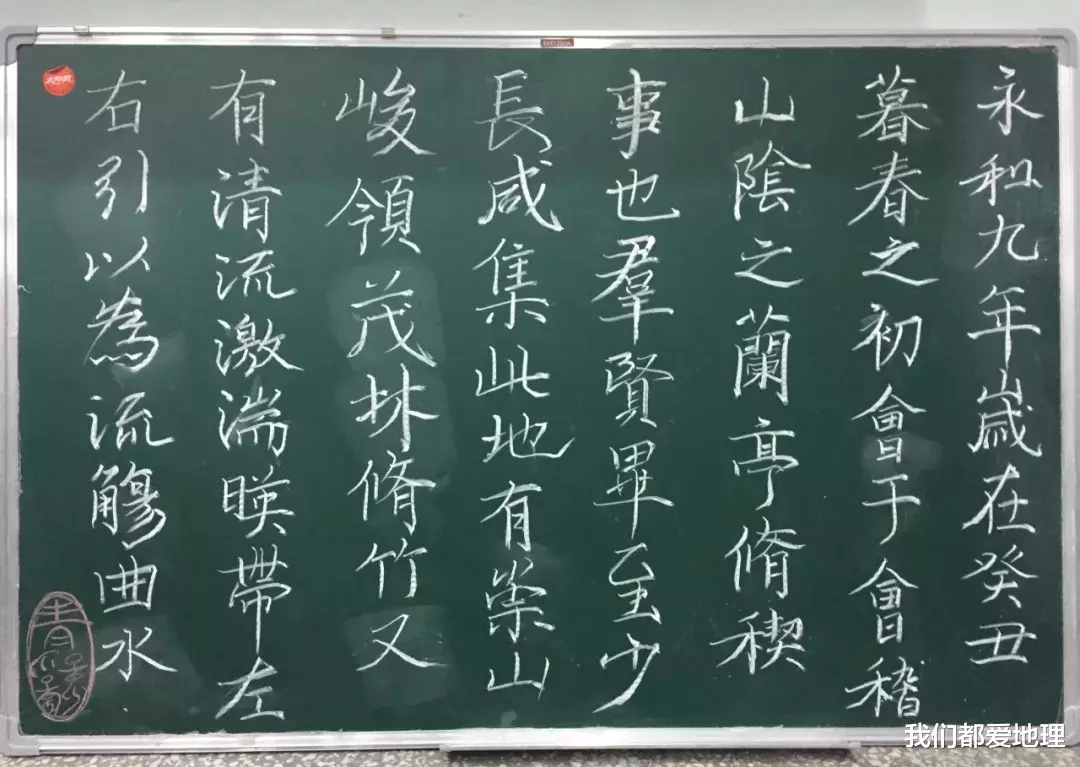 永和九年歲在癸丑
暮春之初會于會稽
山陰之蘭亭脩稧
事也羣賢畢至少
長咸集此地有崇山
峻領茂林脩竹又
有清流激湍暎帶左
右引以為流觴曲水
我们都爱地理